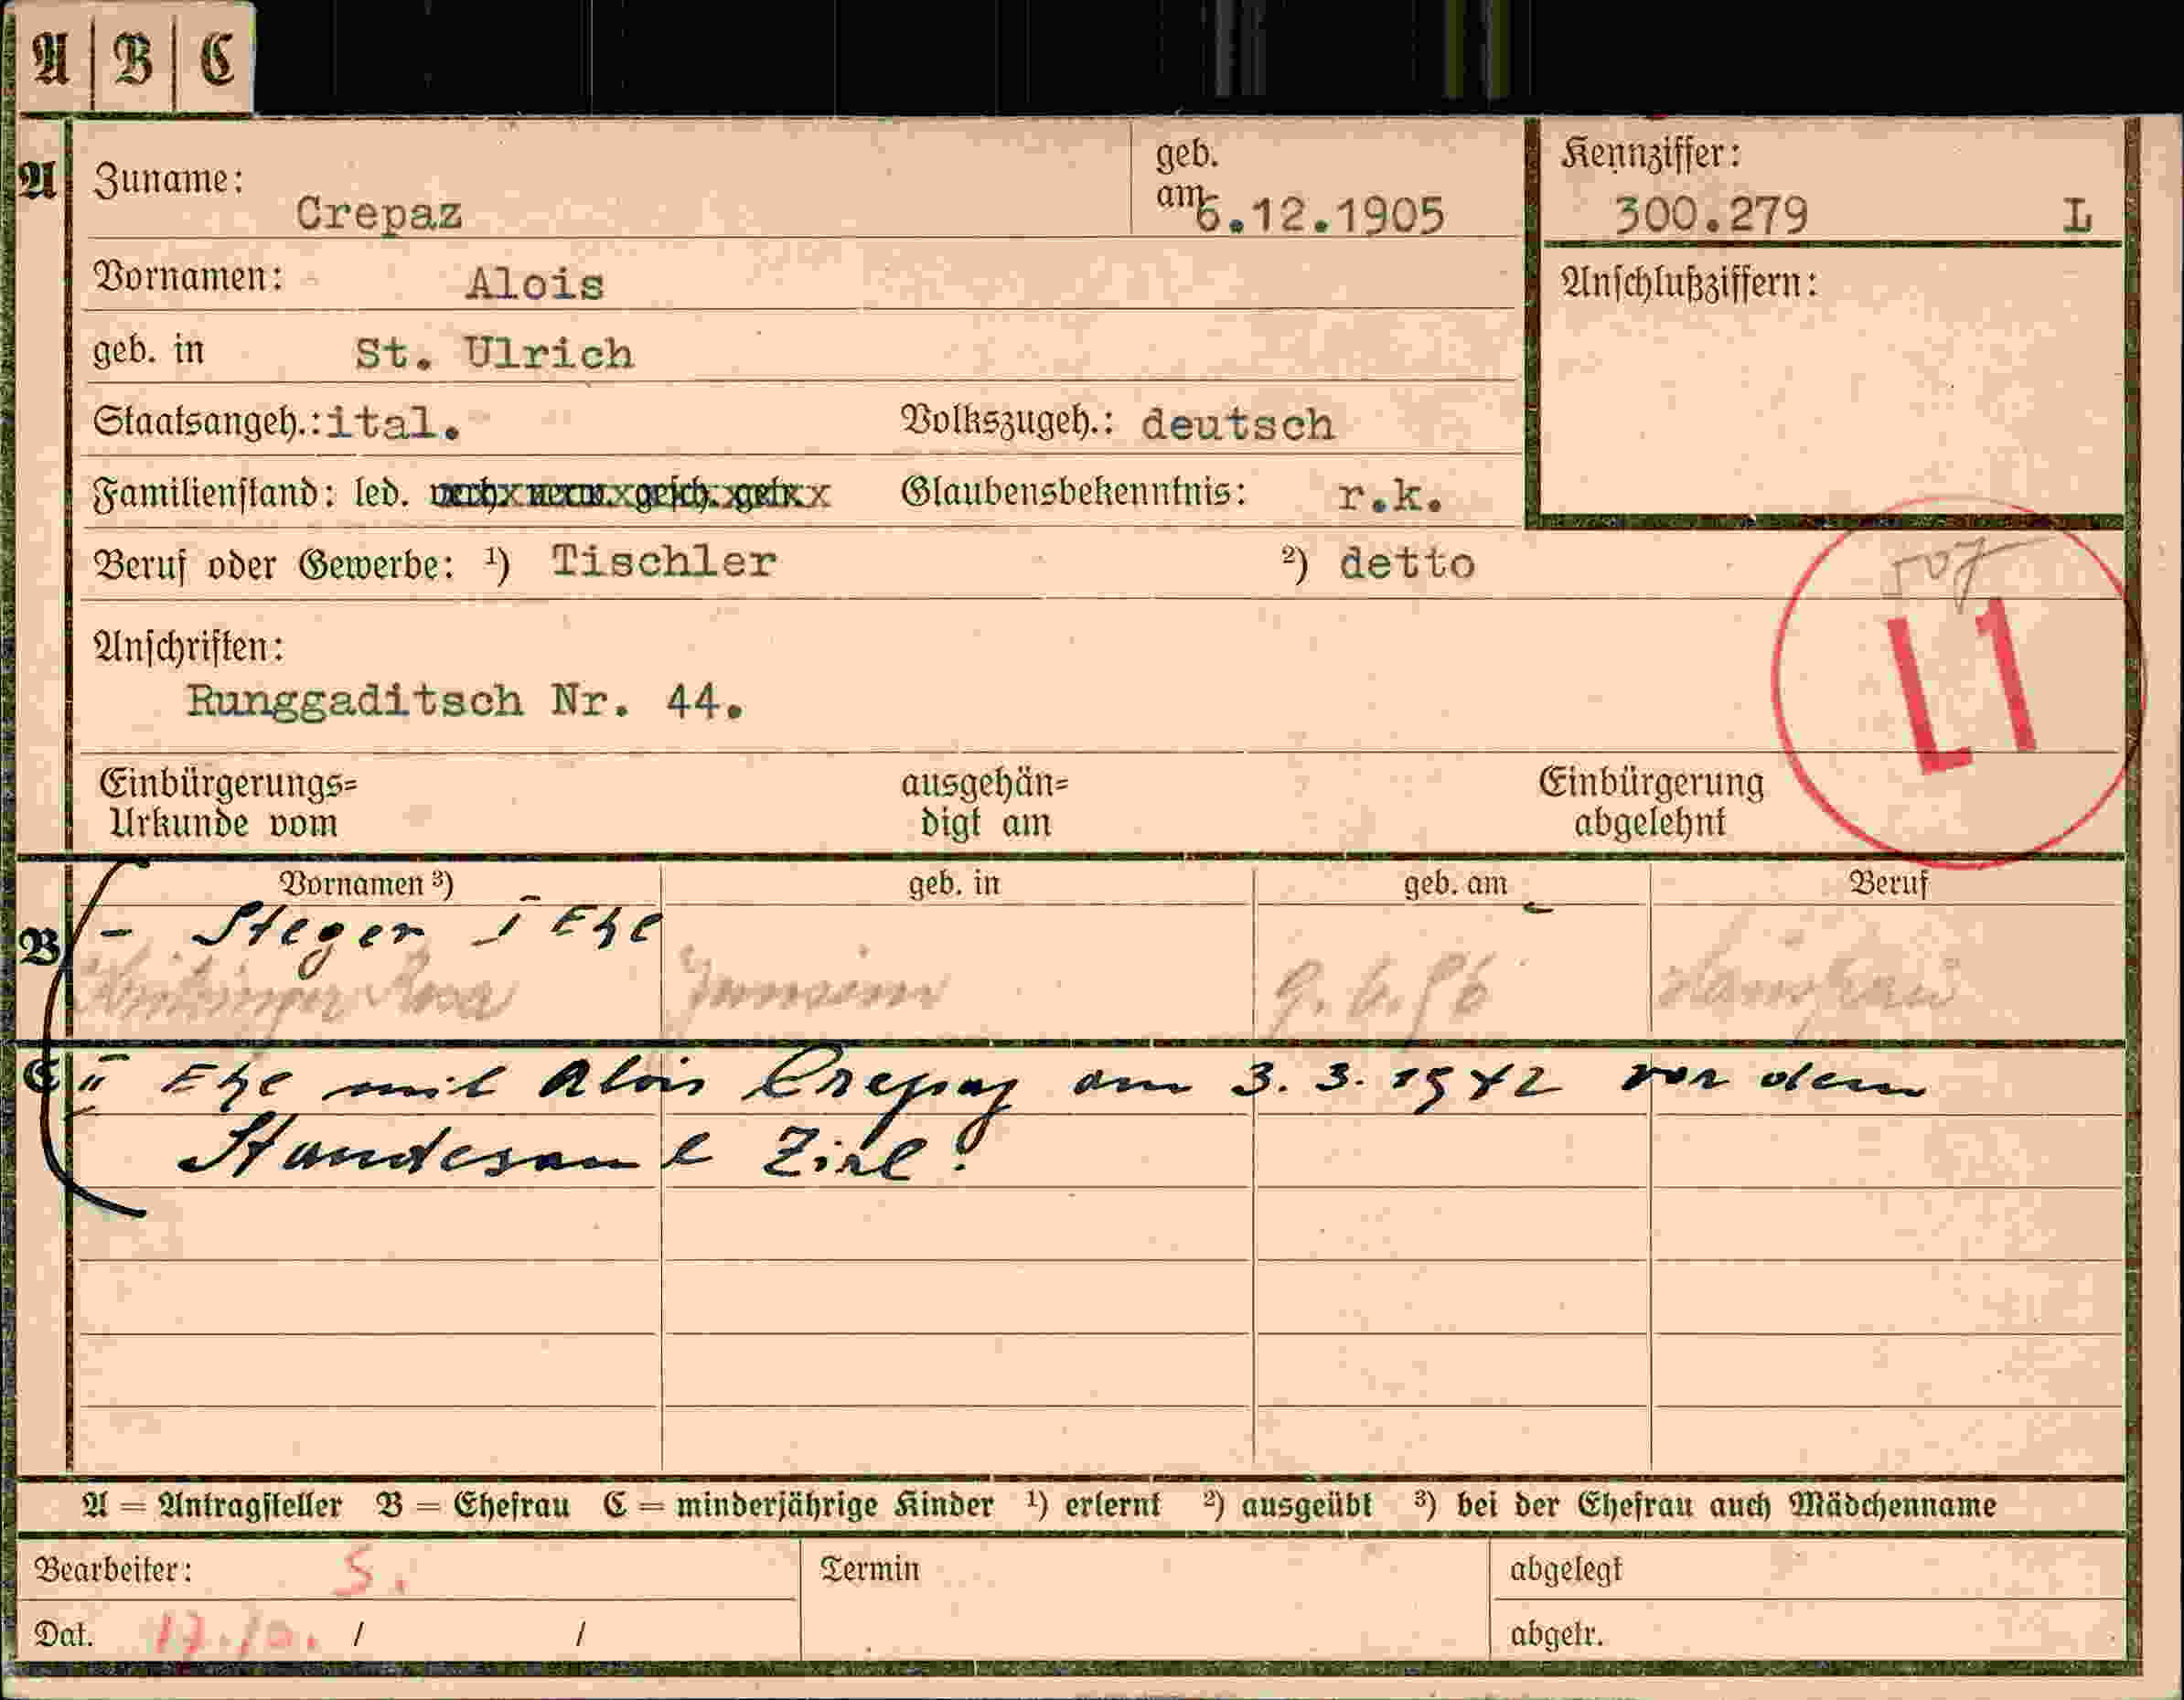 A | B | C
A Zuname: Crepaz geb. am 6.12.1905
Kennziffer: 300.279 L
Vornamen: Alois
Anschlußziffern:
geb. in St. Ulrich
Staatsangeh.: ital. Volkszugeh.: deutsch
Familienstand: led. verh. verw. gesch. getr. Glaubensbekenntnis: r.k.
Beruf oder Gewerbe: ¹) Tischler ²) detto
L1
Anschriften:
Runggaditsch Nr. 44.
Einbürgerungs= ausgehän= Einbürgerung
Urkunde vom digt am abgelehnt
Vornamen ³) geb. in geb. am Beruf
B - Steger I Ehe
Rosa 9.6.96 Hausfrau
C II Ehe mit Alois Crepaz am 3.3.1942 vor dem
Standesamt Zirl.
A = Antragsteller B = Ehefrau C = minderjährige Kinder ¹) erlernt ²) ausgeübt ³) bei der Ehefrau auch Mädchenname
Bearbeiter: S. Termin abgelegt
Dat. 17.10. / / abgetr.